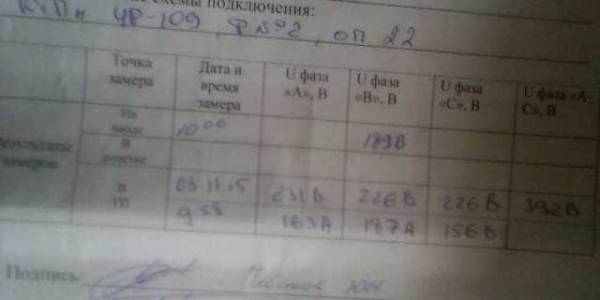 схемы подключения:
КТПн ЧР-109, Ф№2, оп 22
Точка замера Дата и время замера U фаза «А», В U фаза «В», В U фаза «С», В U фаза «А-С», В
Результаты замеров
На вводе 10⁰⁰ 189В
В розетке
В ТП 03.11.15 231В 226В 226В 392В
9 58 163А 187А 156В
Подпись